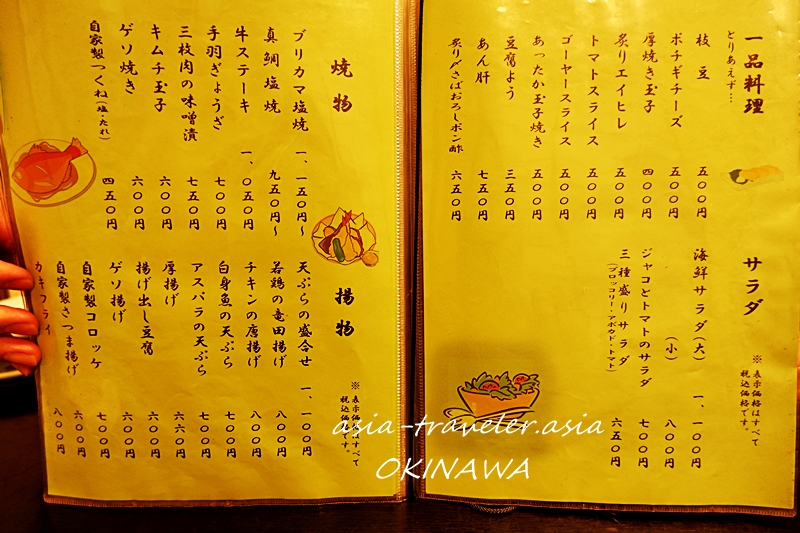 一品料理
とりあえず…
枝豆 五〇〇円
ポチギチーズ 五〇〇円
厚焼き玉子 四〇〇円
炙りエイヒレ 五〇〇円
トマトスライス 五〇〇円
ゴーヤースライス 五〇〇円
あったか玉子焼き 五〇〇円
豆腐よう 三五〇円
あん肝 七五〇円
炙り〆さばおろしポン酢 六五〇円
サラダ
※表示価格はすべて
税込価格です。
海鮮サラダ(大) 一、一〇〇円
(小) 八〇〇円
ジャコとトマトのサラダ 七〇〇円
三種盛りサラダ 六五〇円
(ブロッコリー・アボカド・トマト)
焼物
ブリカマ塩焼 一、一五〇円〜
真鯛塩焼 九五〇円〜
牛ステーキ 一、〇五〇円
手羽ぎょうざ 七〇〇円
三枚肉の味噌漬 七〇〇円
キムチ玉子 六〇〇円
ゲソ焼き 六〇〇円
自家製つくね(塩・たれ) 四五〇円
揚物
※表示価格はすべて
税込価格です。
天ぷらの盛合せ 一、一〇〇円
若鶏の竜田揚げ 八〇〇円
チキンの唐揚げ 八〇〇円
白身魚の天ぷら 七〇〇円
アスパラの天ぷら 七〇〇円
厚揚げ
揚げ出し豆腐 六〇〇円
ゲソ揚げ 六〇〇円
自家製コロッケ 七〇〇円
自家製さつま揚げ 八〇〇円
カキフライ
asia-traveler.asia
OKINAWA